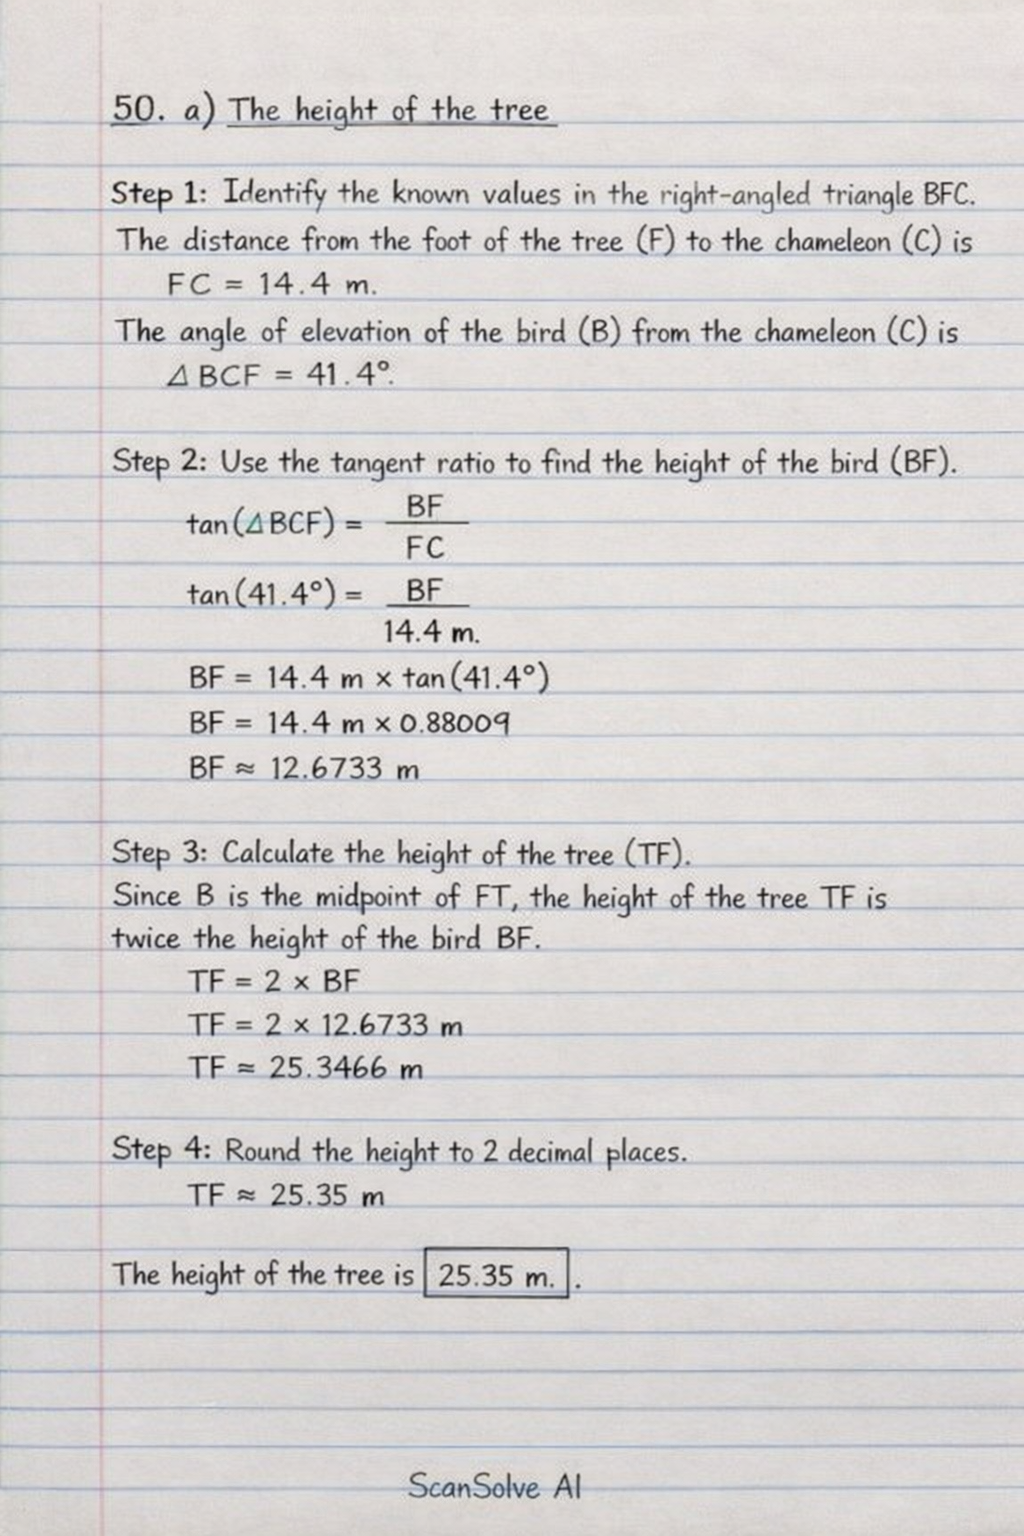 50. a) The height of the tree
Step 1: Identify the known values in the right-angled triangle BFC.
The distance from the foot of the tree (F) to the chameleon (C) is
FC = 14.4 m.
The angle of elevation of the bird (B) from the chameleon (C) is
△ BCF = 41.4°.
Step 2: Use the tangent ratio to find the height of the bird (BF).
tan(△BCF) = BF
FC
tan(41.4°) = BF
14.4 m.
BF = 14.4 m × tan(41.4°)
BF = 14.4 m × 0.88009
BF ≈ 12.6733 m
Step 3: Calculate the height of the tree (TF).
Since B is the midpoint of FT, the height of the tree TF is
twice the height of the bird BF.
TF = 2 × BF
TF = 2 × 12.6733 m
TF ≈ 25.3466 m
Step 4: Round the height to 2 decimal places.
TF ≈ 25.35 m
The height of the tree is 25.35 m. .
ScanSolve AI